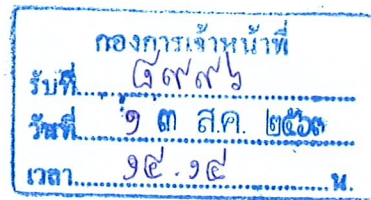 กองการเจ้าหน้าที่
รับที่ ๘๙๙๖
วันที่ ๑๓ ส.ค. ๒๕๖๓
เวลา ๑๔.๑๔ น.